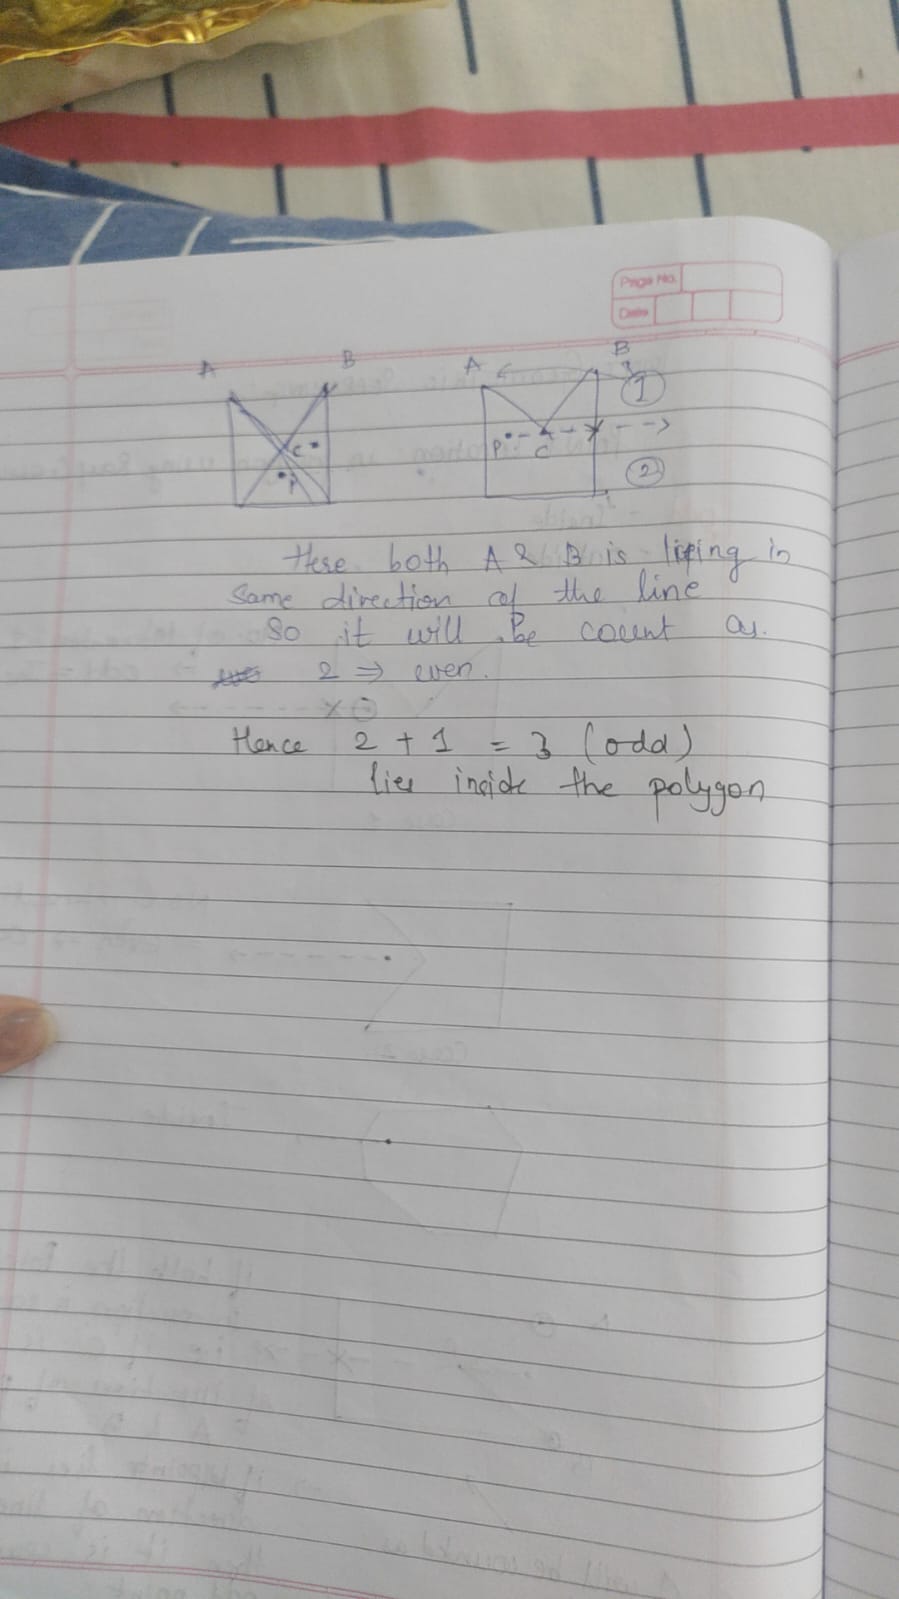 Page No.
Date
A B
C
P
A B
1
P C
2
Here both A & B is lieing in
same direction of the line
So it will be count as.
2 ⇒ even.
Hence 2 + 1 = 3 (odd)
lies inside the polygon